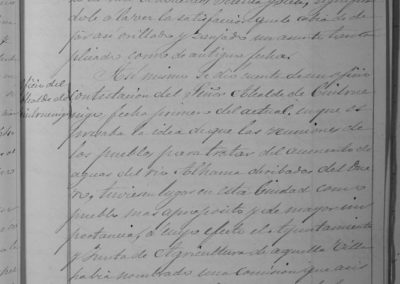 dole a la vez la satisfacion que le cabia de de
jar orillado y zanjado un asunto tan com
plicado como de antigua fecha.
Oficio del
Alcalde de
Cintruenigo
Asi mismo se dio cuenta de un oficio
contestacion del Señor Alcalde de Cintrue
nigo, fecha primero del actual, en que se a
probaba la idea de que las reuniones de
los pueblos para tratar del aumento de
aguas del rio Alhama deribadas del Due
ro, tuviesen lugar en esta Ciudad como
pueblo mas aproposito y de mayor im
portancia, a cuyo efecto el Ayuntamiento
y Junta de Agricultura de aquella Villa
habia nombrado una comision que asis